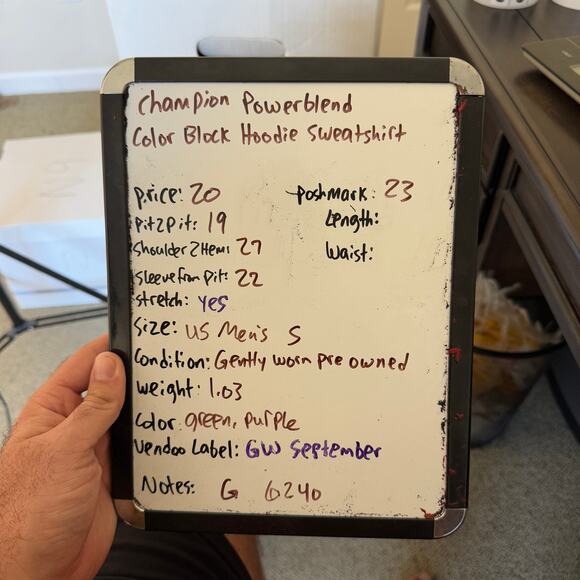 Champion Powerblend
Color Block Hoodie Sweatshirt
price: 20
poshmark: 23
Pit2Pit: 19
Length:
Shoulder2Hem: 27
Waist:
Sleeve from Pit: 22
Stretch: yes
Size: US Men's S
Condition: Gently worn pre owned
Weight: 1.03
Color: green, purple
Vendoo Label: GW September
Notes: G 6240